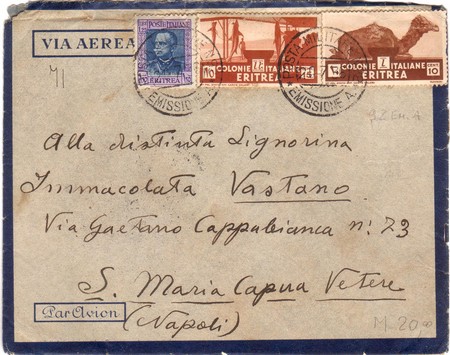 VIA AEREA
POSTE ITALIANE
ERITREA
COLONIE ITALIANE
ERITREA
COLONIE ITALIANE
ERITREA
10
EMISSIONE A.
EMISSIONE A.
Alla distinta Signorina
Immacolata Vastano
Via Gaetano Cappabianca n: 73
S. Maria Capua Vetere
(Napoli)
Par Avion
M- 20,00